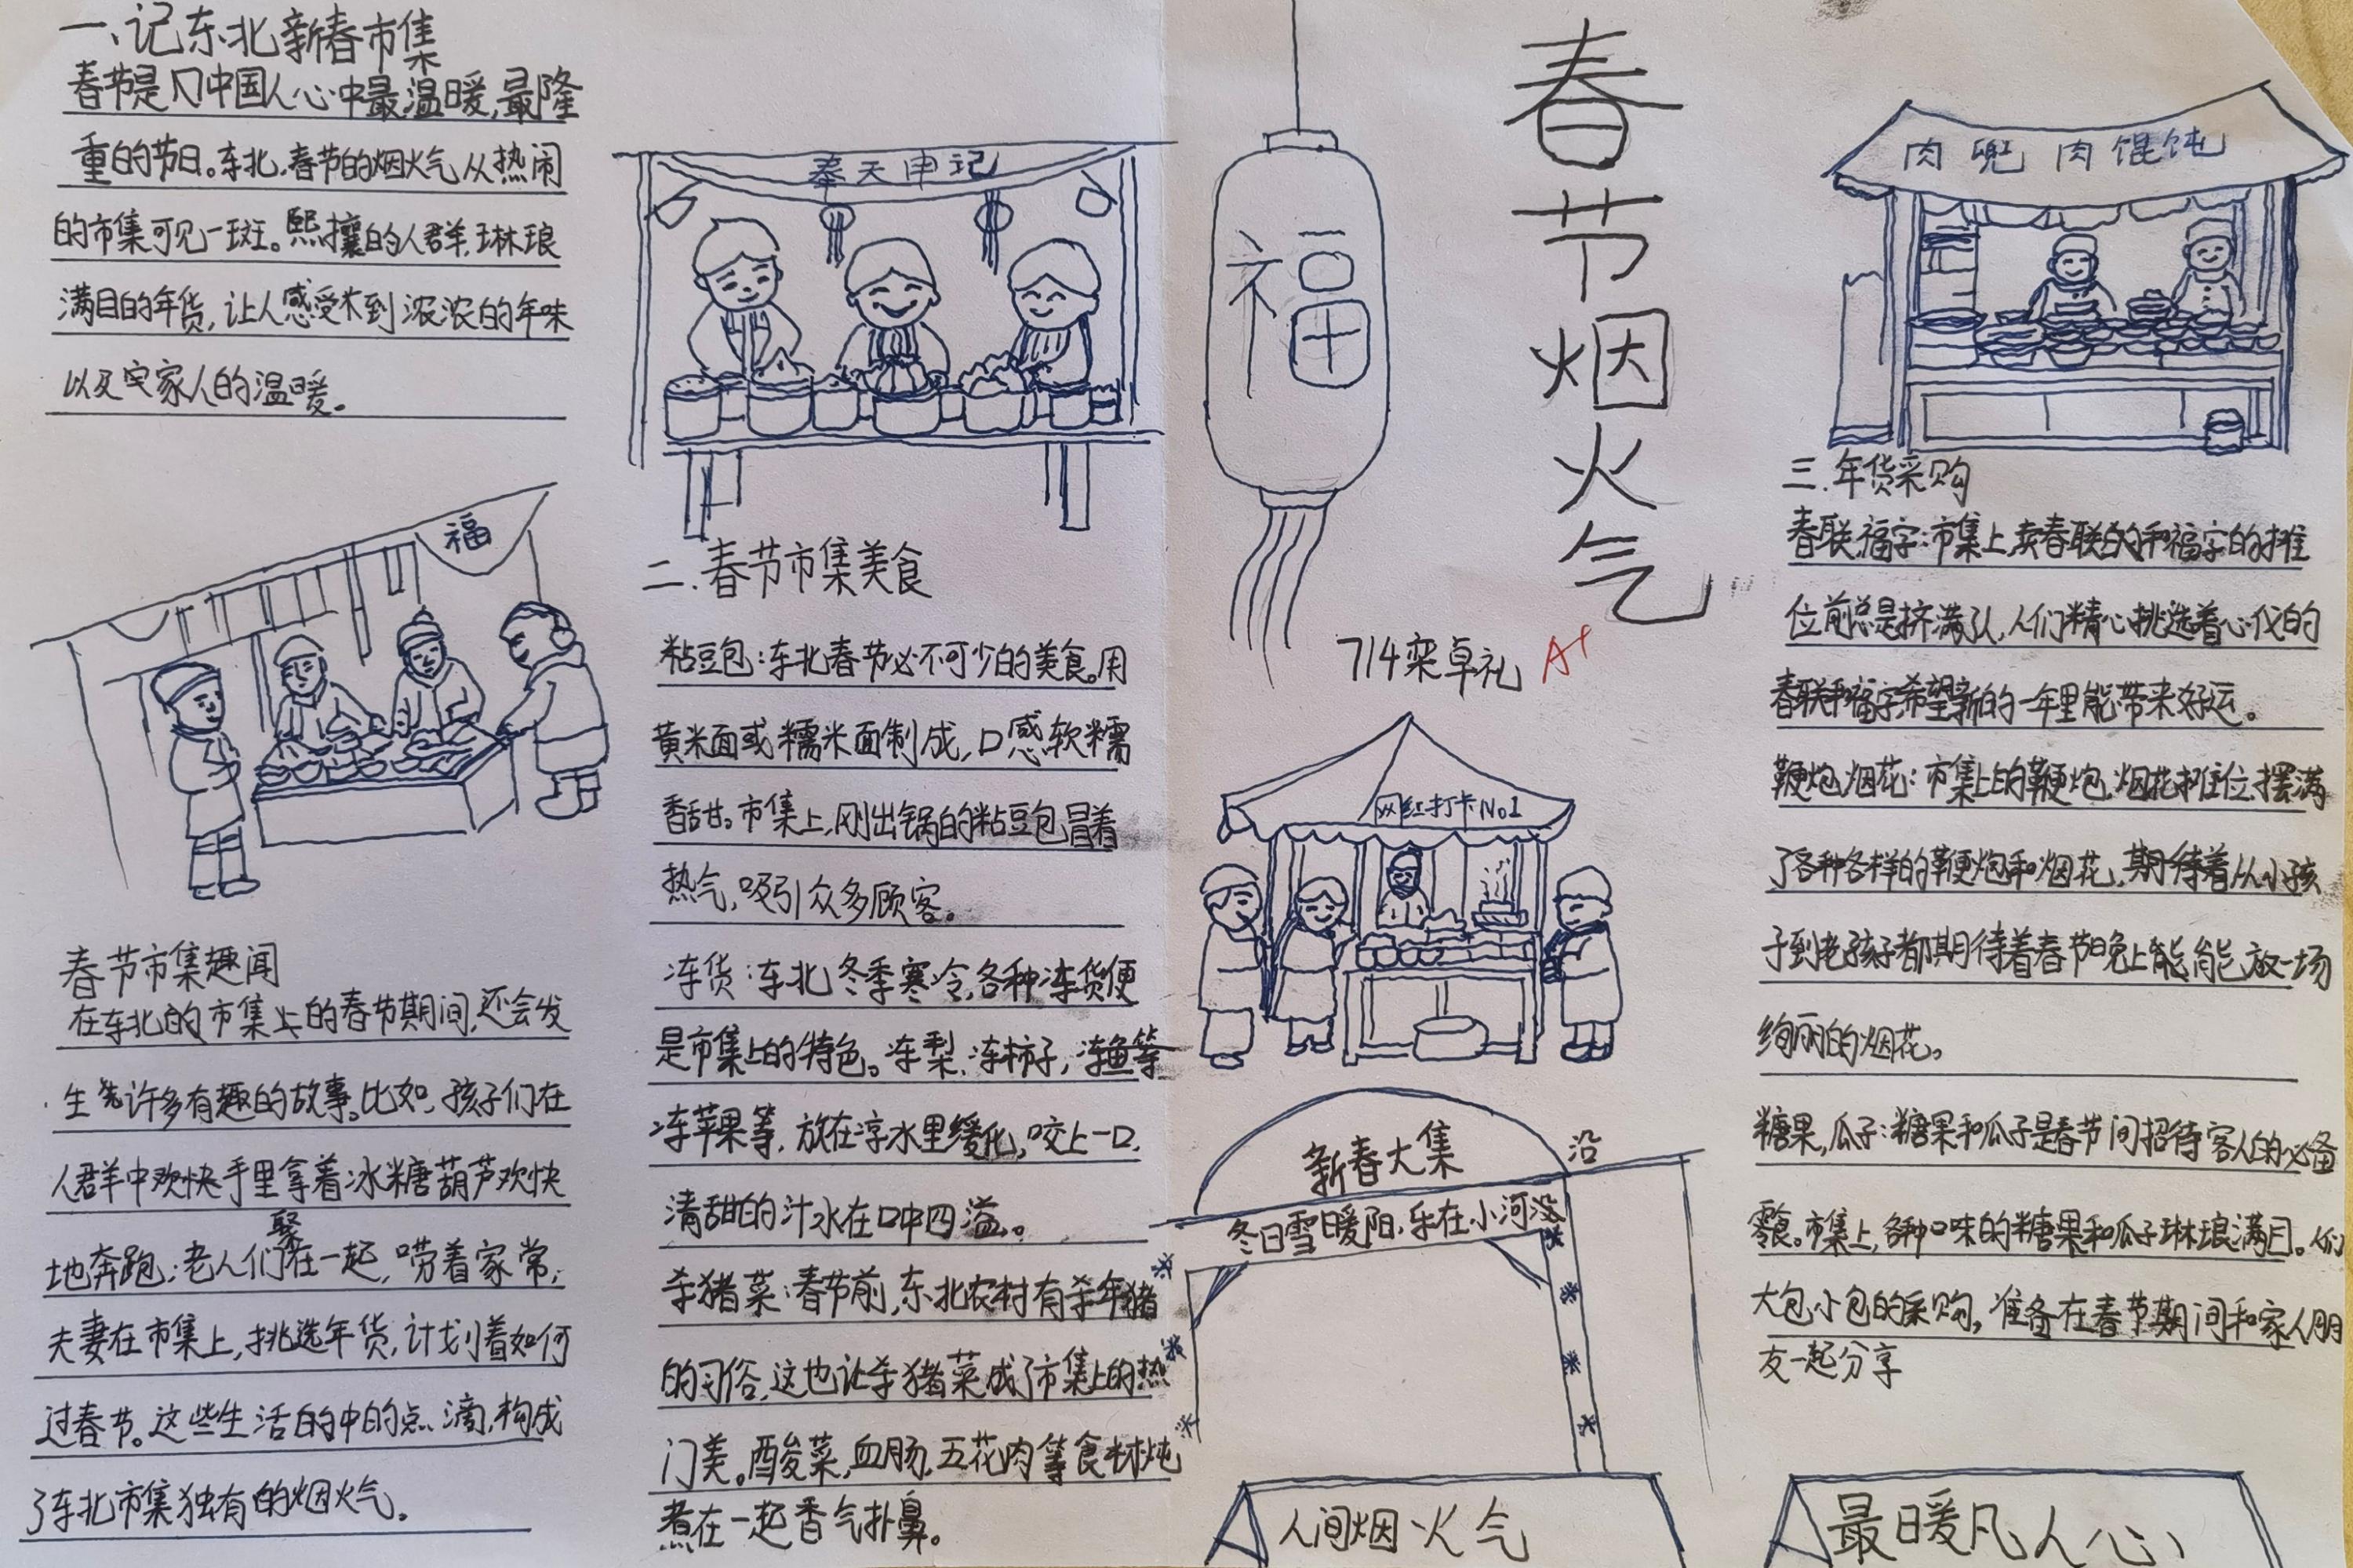 一、记东北新春市集
春节是中国人心中最温暖,最隆
重的节日。东北,春节的烟火气从热闹
的市集可见一斑。熙攘的人群,琳琅
满目的年货,让人感受到浓浓的年味
以及家人的温暖。
福
春节市集趣闻
在东北的市集上的春节期间,还会发
生许多有趣的故事。比如,孩子们在
人群中欢快手里拿着冰糖葫芦欢快
地奔跑;老人们聚在一起,唠着家常;
夫妻在市集上,挑选年货,计划着如何
过春节。这些生活的中的点滴,构成
了东北市集独有的烟火气。
奉天申记
二.春节市集美食
粘豆包:东北春节必不可少的美食。用
黄米面或糯米面制成,口感软糯
香甜。市集上,刚出锅的粘豆包冒着
热气,吸引众多顾客。
冻货:东北冬季寒冷,各种冻货便
是市集上的特色。冻梨、冻柿子,冻鱼等
冻苹果等,放在凉水里缓化,咬上一口,
清甜的汁水在口中四溢。
杀猪菜:春节前,东北农村有杀年猪
的习俗,这也让杀猪菜成了市集上的热
门美。酸菜,血肠,五花肉等食材炖
煮在一起香气扑鼻。
福
春节烟火气
714栾卓礼 A+
网红打卡No1
新春大集
沿
冬日雪暖阳,乐在小河沿
人间烟火气
最暖凡人心
肉兜肉馄饨
三.年货采购
春联,福字:市集上,卖春联的和福字的摊
位前总是挤满了人,人们精心挑选着心仪的
春联和福字,希望新的一年里能带来好运。
鞭炮,烟花:市集上的鞭炮,烟花摊位,摆满
了各种各样的鞭炮和烟花,期待着从小孩
子到老孩子都期待着春节晚上能能放一场
绚丽的烟花。
糖果,瓜子:糖果和瓜子是春节间招待客人的必备
零食。市集上,各种口味的糖果和瓜子琳琅满目。人们
大包小包的采购,准备在春节期间和家人朋
友一起分享